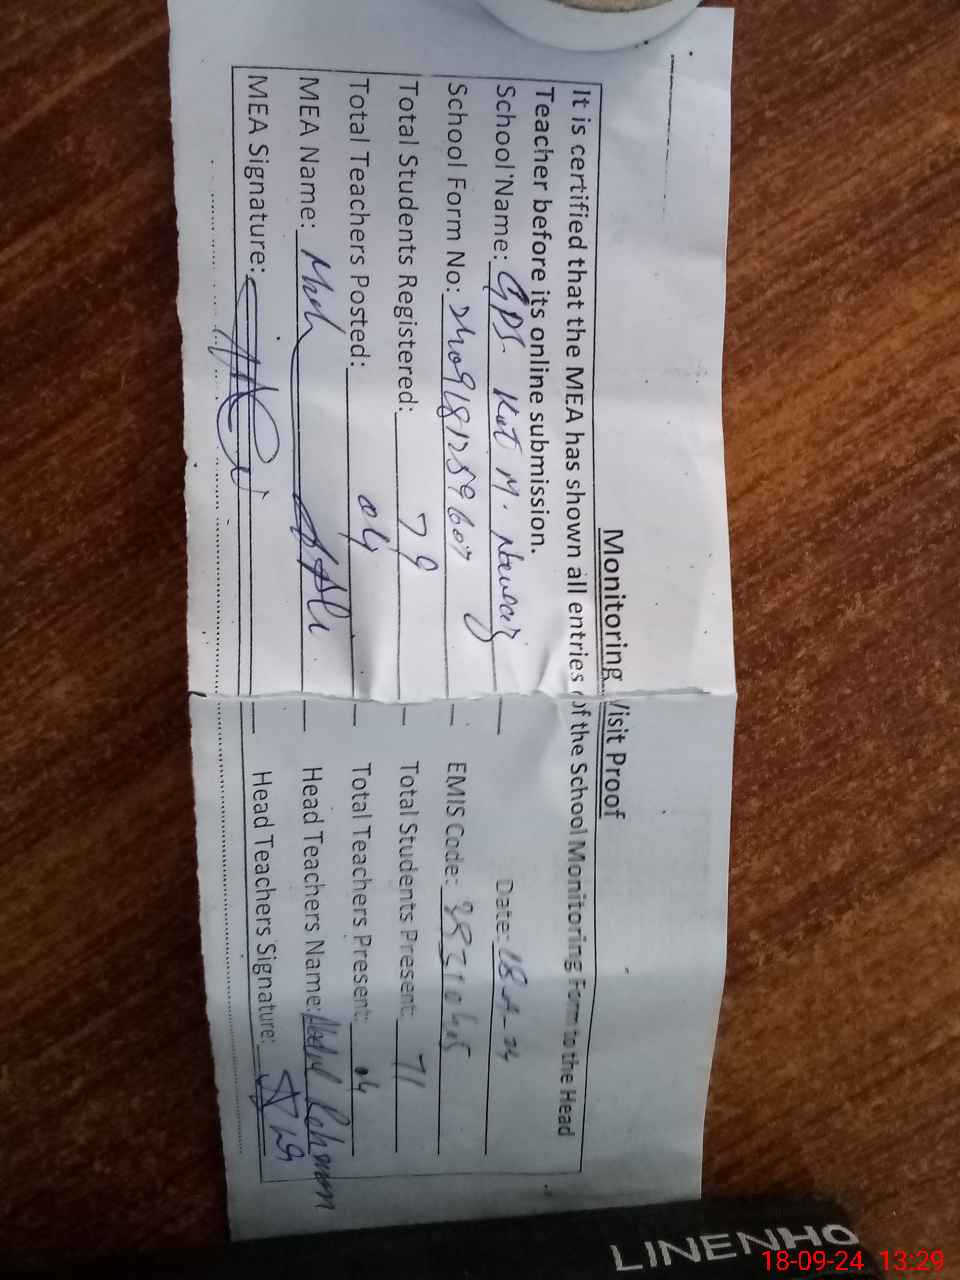 Monitoring Visit Proof
It is certified that the MEA has shown all entries of the School Monitoring Form to the Head
Teacher before its online submission.
School Name: GPS Kot M. Date: 18-9-24
School Form No: EMIS Code:
Total Students Registered: 79 Total Students Present: 71
Total Teachers Posted: 04 Total Teachers Present: 04
MEA Name: Head Teachers Name: Abdul Rehman
MEA Signature: Head Teachers Signature:
LINENHO
18-09-24 13:29